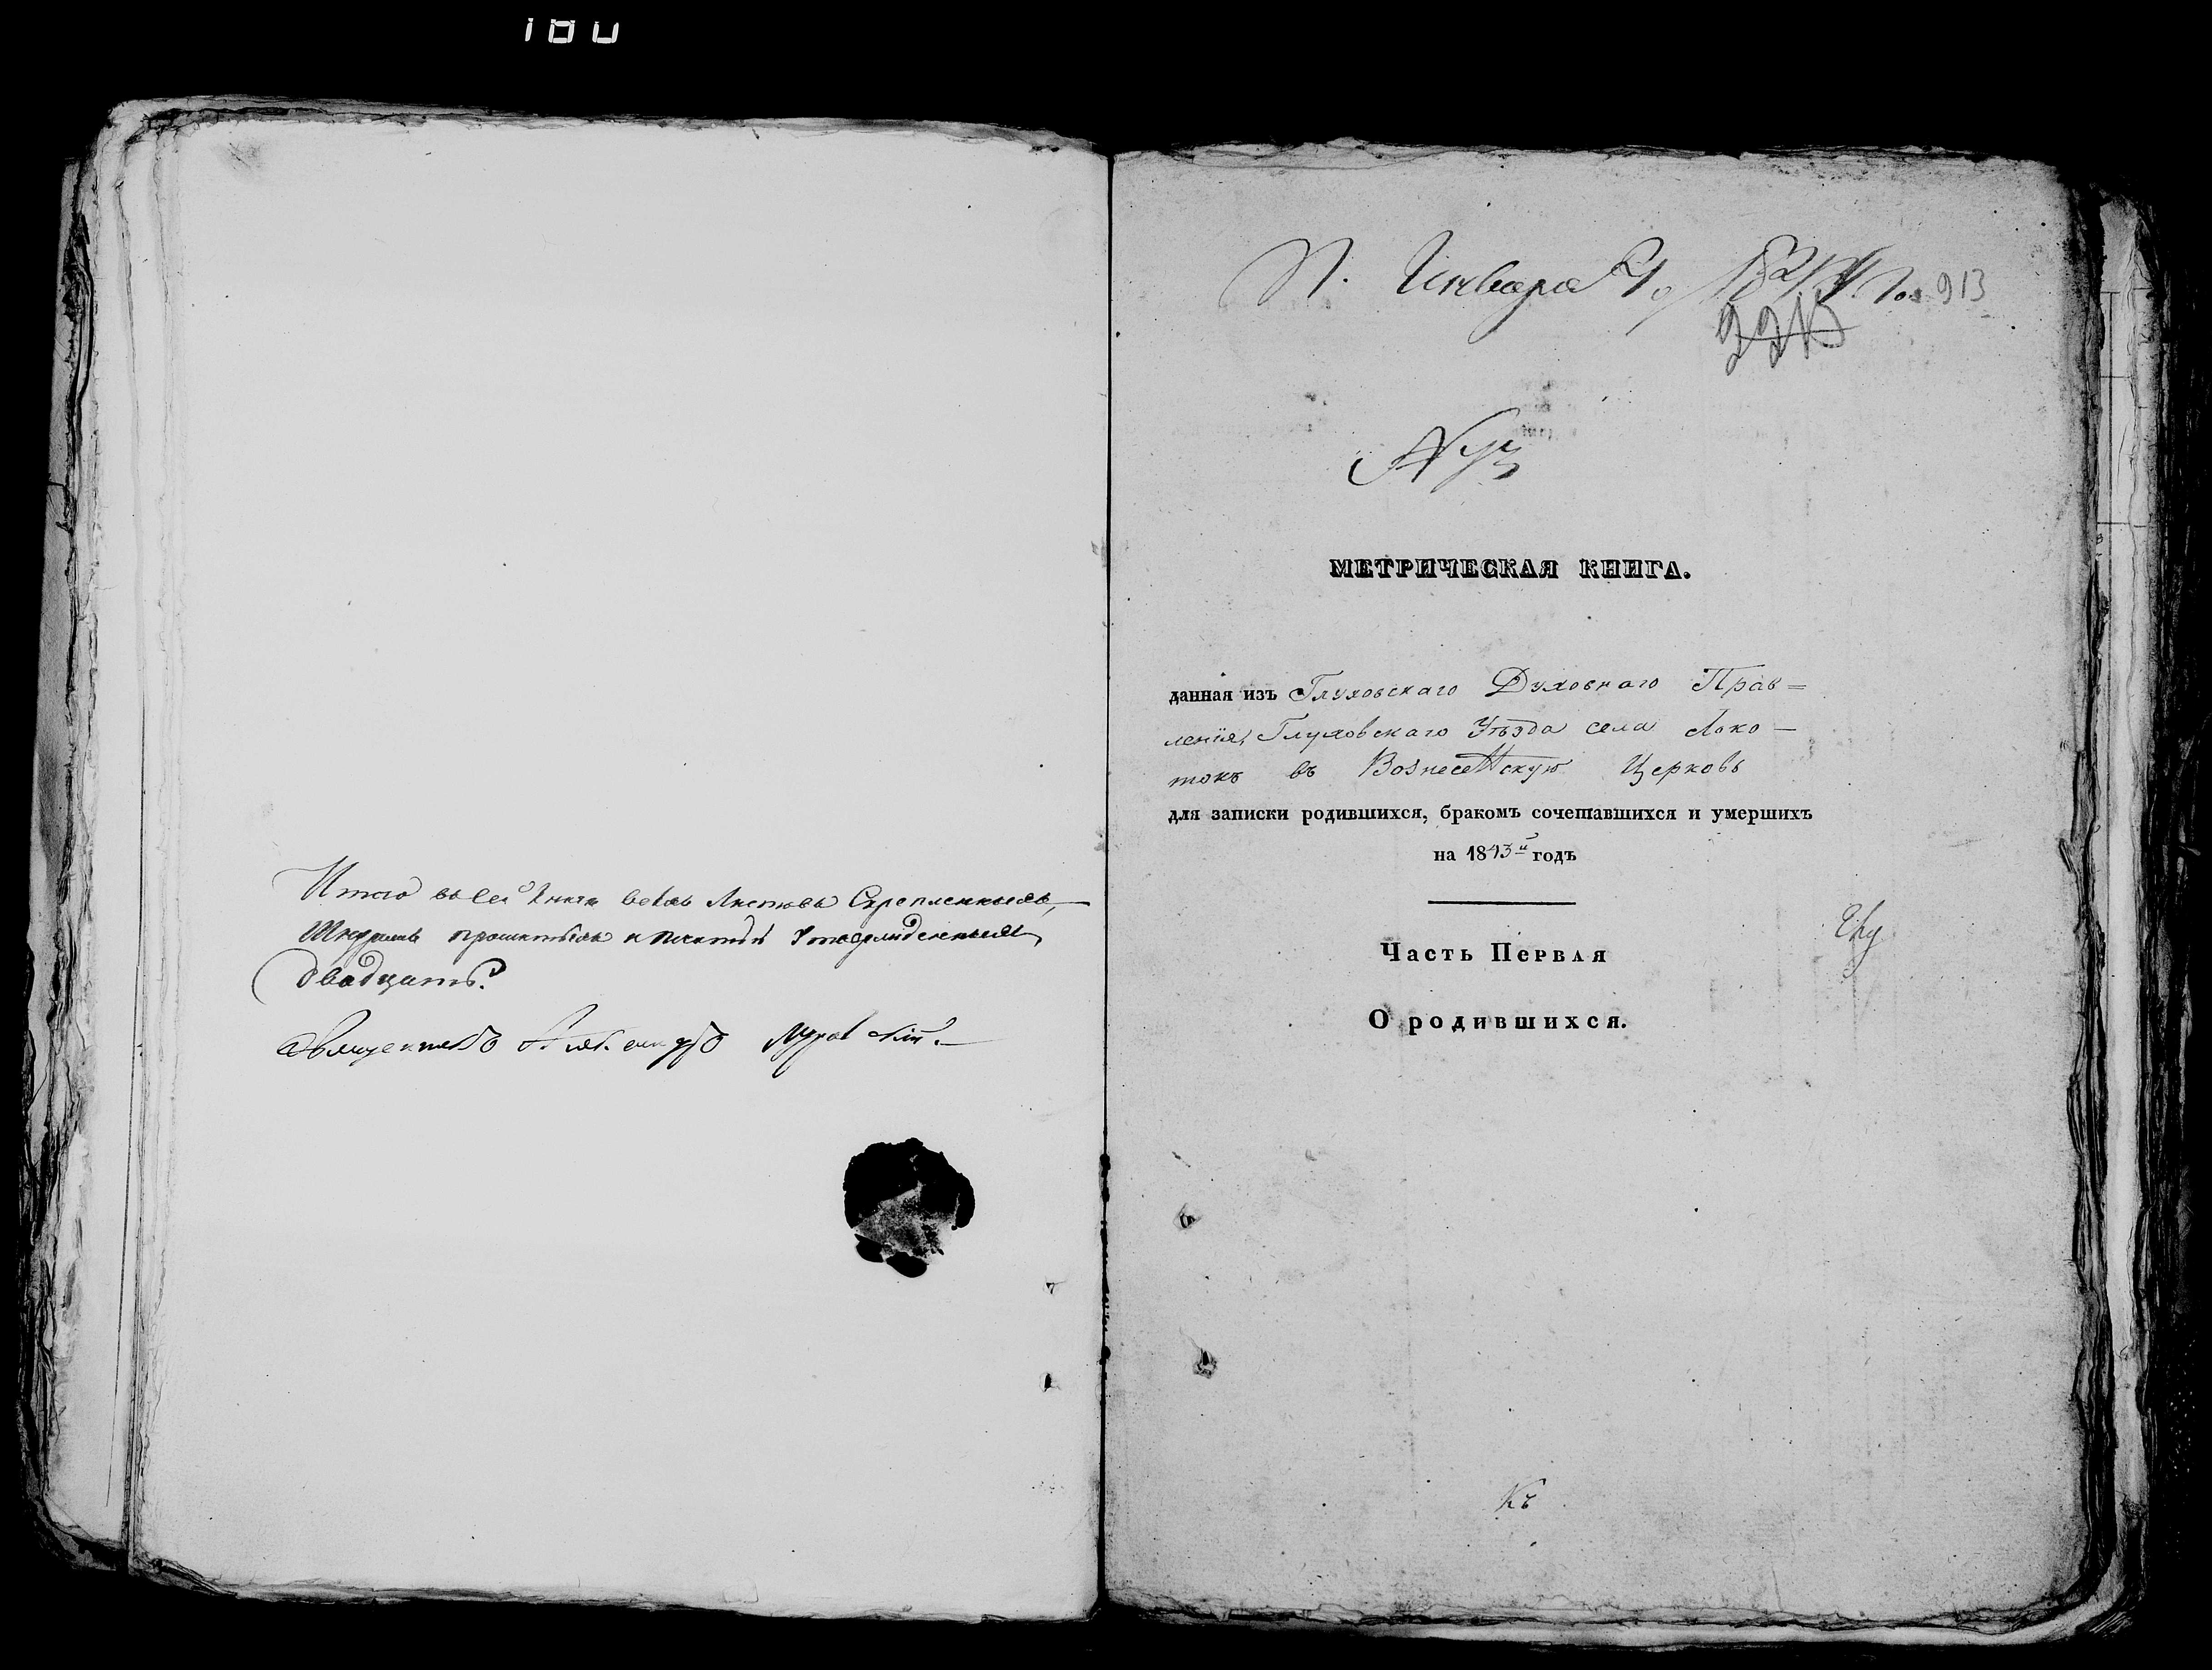 180
Итого въ сей книги всехъ листовъ скрепленныхъ,
шнуромъ прошитыхъ и печатью утвержденныхъ
двадцать.
Священникъ Александръ
П. Января
913
МЕТРИЧЕСКАЯ КНИГА.
данная изъ Глуховскаго Духовнаго Прав=
ленія, Глуховскаго Уѣзда села Локо-
токъ въ Вознесенскую Церковь
для записки родившихся, бракомъ сочетавшихся и умершихъ
на 1843й годъ
Часть Первая
О родившихся.